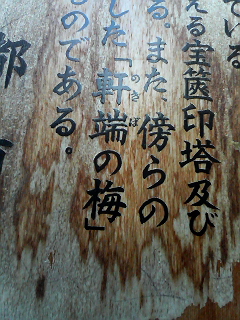 ている
える宝篋印塔及び
る。また、傍らの
した「軒端の梅」
のきば
ものである。
都